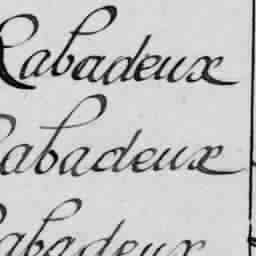 Rabadeux
Rabadeux
Rabadeux